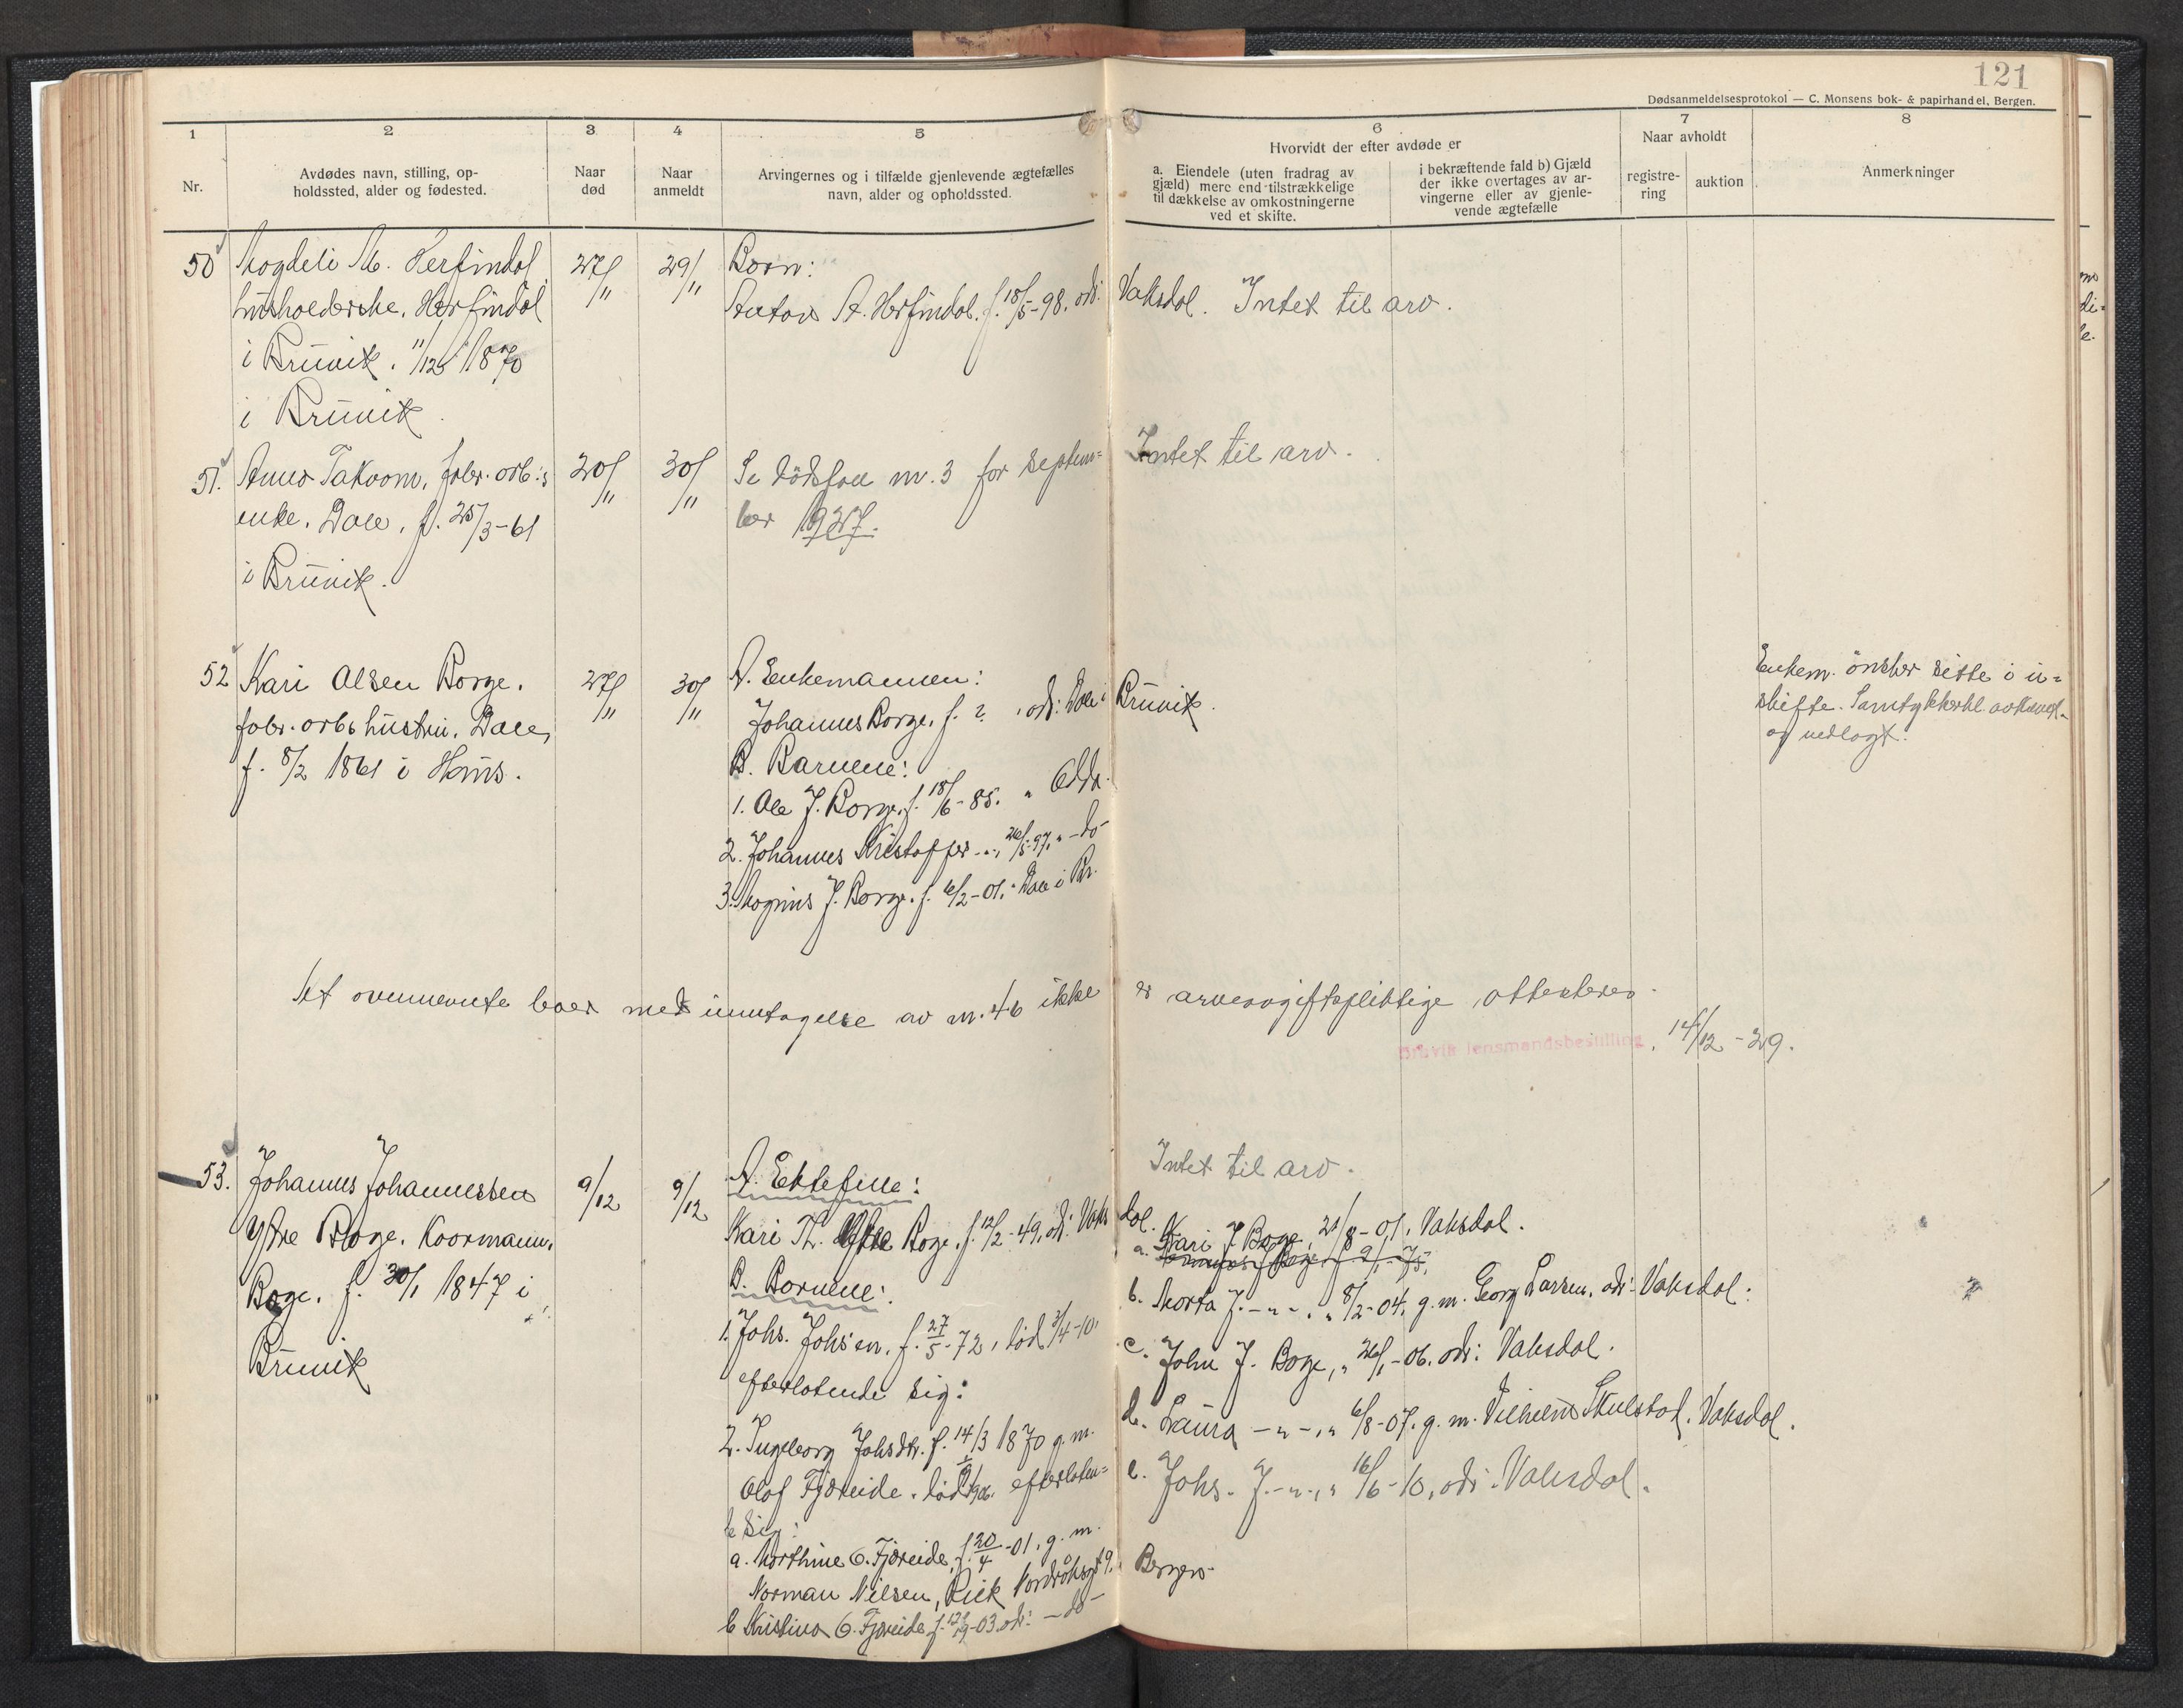 121
Dødsanmeldelsesprotokol — C. Monsens bok- & papirhandel, Bergen.
1 2 3 4 5 6 7 8
Nr.
Avdødes navn, stilling, op-
holdssted, alder og fødested.
Naar
død
Naar
anmeldt
Arvingernes og i tilfælde gjenlevende ægtefælles
navn, alder og opholdssted.
Hvorvidt der efter avdøde er
a. Eiendele (uten fradrag av
gjæld) mere end tilstrækkelige
til dækkelse av omkostningerne
ved et skifte.
i bekræftende fald b) Gjæld
der ikke overtages av ar-
vingerne eller av gjenle-
vende ægtefælle
Naar avholdt
registre-
ring
auktion
Anmerkninger
50 Magdeli M. Herfindal
husholderske. Herfindal
i Bruvik. 11/12 1870
i Bruvik
27/11
29/11
Barn:
Anton A. Herfindal. f. 18/5-98. adr: Vaksdal. Intet til arv.
51. Anna Takvam, fabr. arb:s
enke. Dale. f. 25/3-61
i Bruvik.
20/11
30/11
Se dødsfall nr. 3 for septem=
ber 1927.
Intet til arv.
52 Kari Olsen Borge.
fabr. arbs hustru. Dale,
f. 8/2 1861 i Hams.
27/11
30/11
A. Enkemannen:
Johannes Borge. f. ? , adr: Dale i Bruvik.
B. Barnene:
1. Ole J. Borge. f. 18/6-85. " Odda.
2. Johannes Kristoffer -"-, 26/5-97, " -do-
3. Magnus J. Borge. f. 6/2-01. " Dale i Br.
Enkem. ønsker sitte i u=
skifte. Samtykkerkl. avkrevet
og vedlagt.
At ovennevnte boer med unntagelse av nr. 46 ikke er arveavgiftspliktige attesteres.
Bruvik lensmandsbestilling, 14/12-29.
53. Johannes Johannessen
Ystre Boge. Kaarmann.
Boge. f. 30/1 1847 i
Bruvik
9/12
9/12
A. Ektefelle:
Kari Th. Ystre Boge. f. 12/2-49. adr: Vaksdal.
B. Barnene:
1. Johs. Johs'en. f. 27/5-72, død 3/4-10.
efterlatende sig:
2. Ingeborg Johsdtr. f. 14/3 1870 g. m.
Olaf Fjæreide. død 1906. efterlaten=
de sig:
a. Marthine O. Fjæreide, f. 20/4-01. g. m.
Norman Nilsen, Rick Nordråksgt 9. Bergen.
b Kristina O. Fjæreide f. 12/9-03. adr: -do-
Intet til arv.
a. Kari J. Boge, 21/8-01, Vaksdal.
b. Marta J. -"-. " 8/2-04, g. m. Georg Larsen, adr: Vaksdal:
c. John J. Boge, " 26/1-06. adr: Vaksdal.
d. Laura -"-, " 6/8-07. g. m. Vilhelm Skulstad. Vaksdal.
e. Johs. J. -"-, " 16/6-10, adr: Vaksdal.